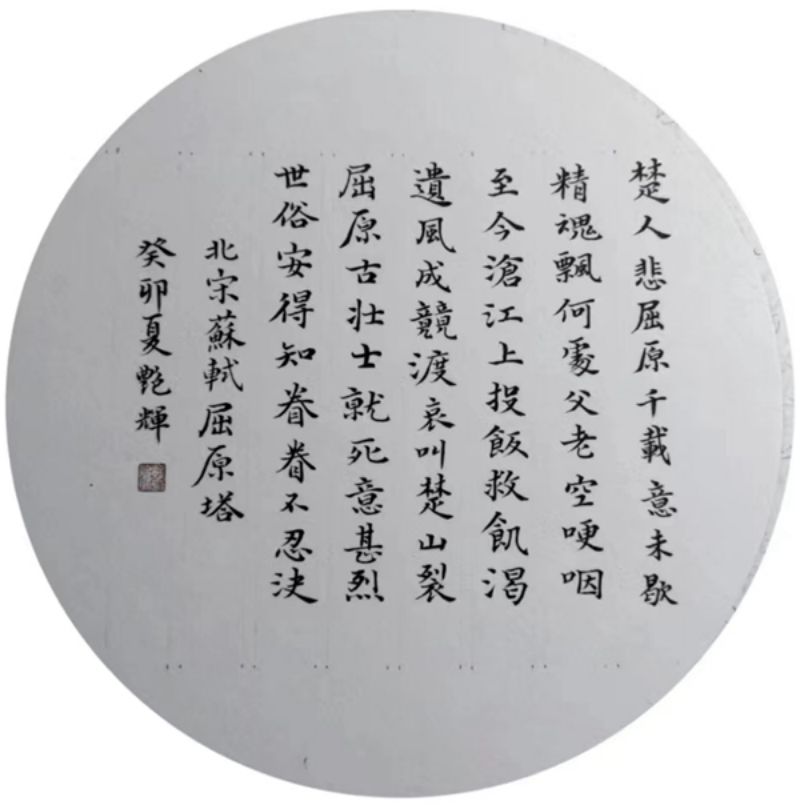 楚人悲屈原千載意未歇
精魂飄何處父老空哽咽
至今滄江上投飯救飢渴
遺風成競渡哀叫楚山裂
屈原古壯士就死意甚烈
世俗安得知眷眷不忍決
北宋蘇軾屈原塔
癸卯夏艷輝